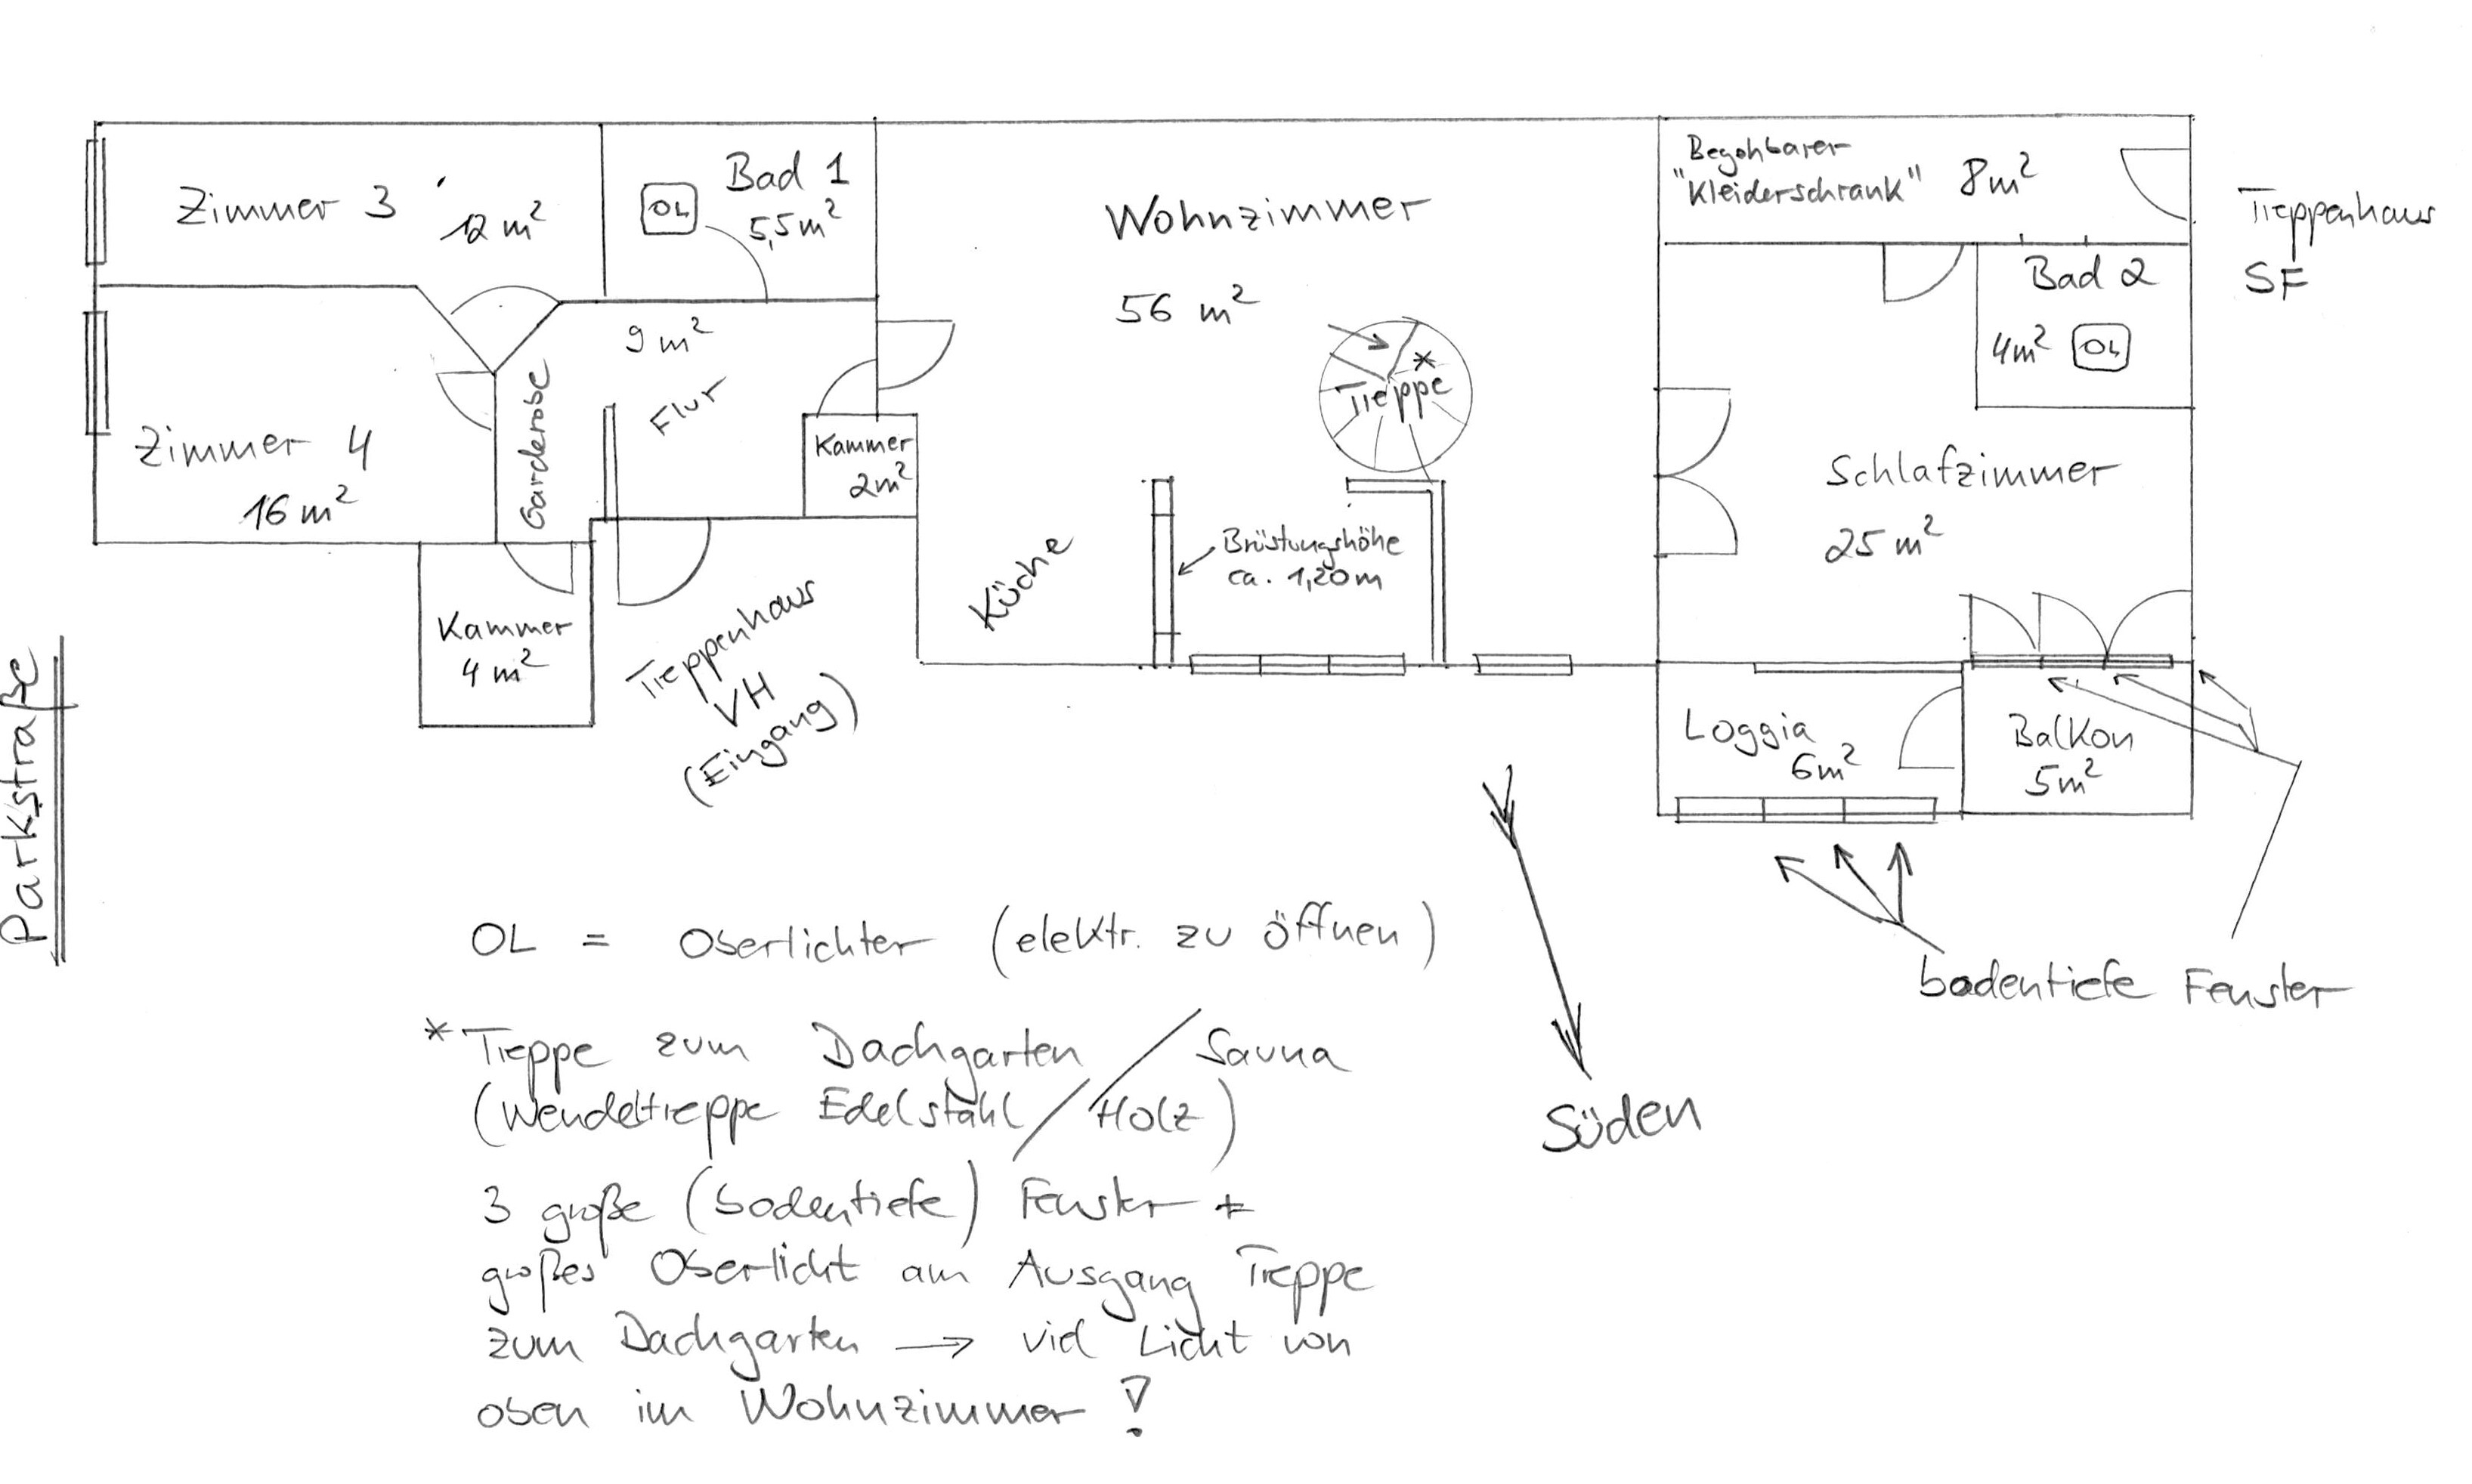 Zimmer 3
12 m²
Bad 1
OL
5,5 m²
Wohnzimmer
56 m²
Begehbarer
"Kleiderschrank" 8 m²
Treppenhaus
SF
Bad 2
4 m² OL
9 m²
Flur
Garderobe
Zimmer 4
16 m²
Kammer
2 m²
Treppe
*
Schlafzimmer
25 m²
Küche
Brüstungshöhe
ca. 1,20 m
Kammer
4 m²
Treppenhaus
VH
(Eingang)
Parkstraße
Loggia
6 m²
Balkon
5 m²
bodentiefe Fenster
Süden
OL = Oberlichter (elektr. zu öffnen)
* Treppe zum Dachgarten / Sauna
(Wendeltreppe Edelstahl / Holz)
3 große (bodentiefe) Fenster +
großes Oberlicht am Ausgang Treppe
zum Dachgarten → viel Licht von
oben im Wohnzimmer !